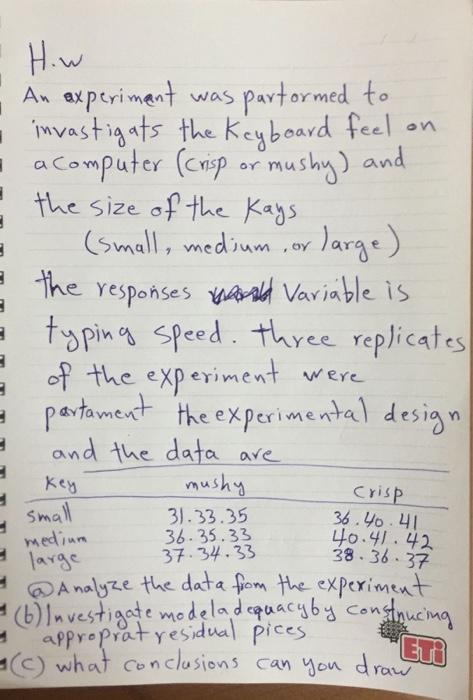 H.w
An experiment was partormed to
invastigats the Keyboard feel on
a computer (crisp or mushy) and
the size of the Kays
(small, medium, or large)
the responses Variable is
typing speed. three replicates
of the experiment were
partament the experimental design
and the data are
Key mushy Crisp
small 31.33.35 36.40.41
medium 36.35.33 40.41.42
large 37.34.33 38.36.37
(a) Analyze the data from the experiment
(b) Investigate model adequacy by constnucing
appropriat residual pices
(c) what conclusions can you draw
ETi